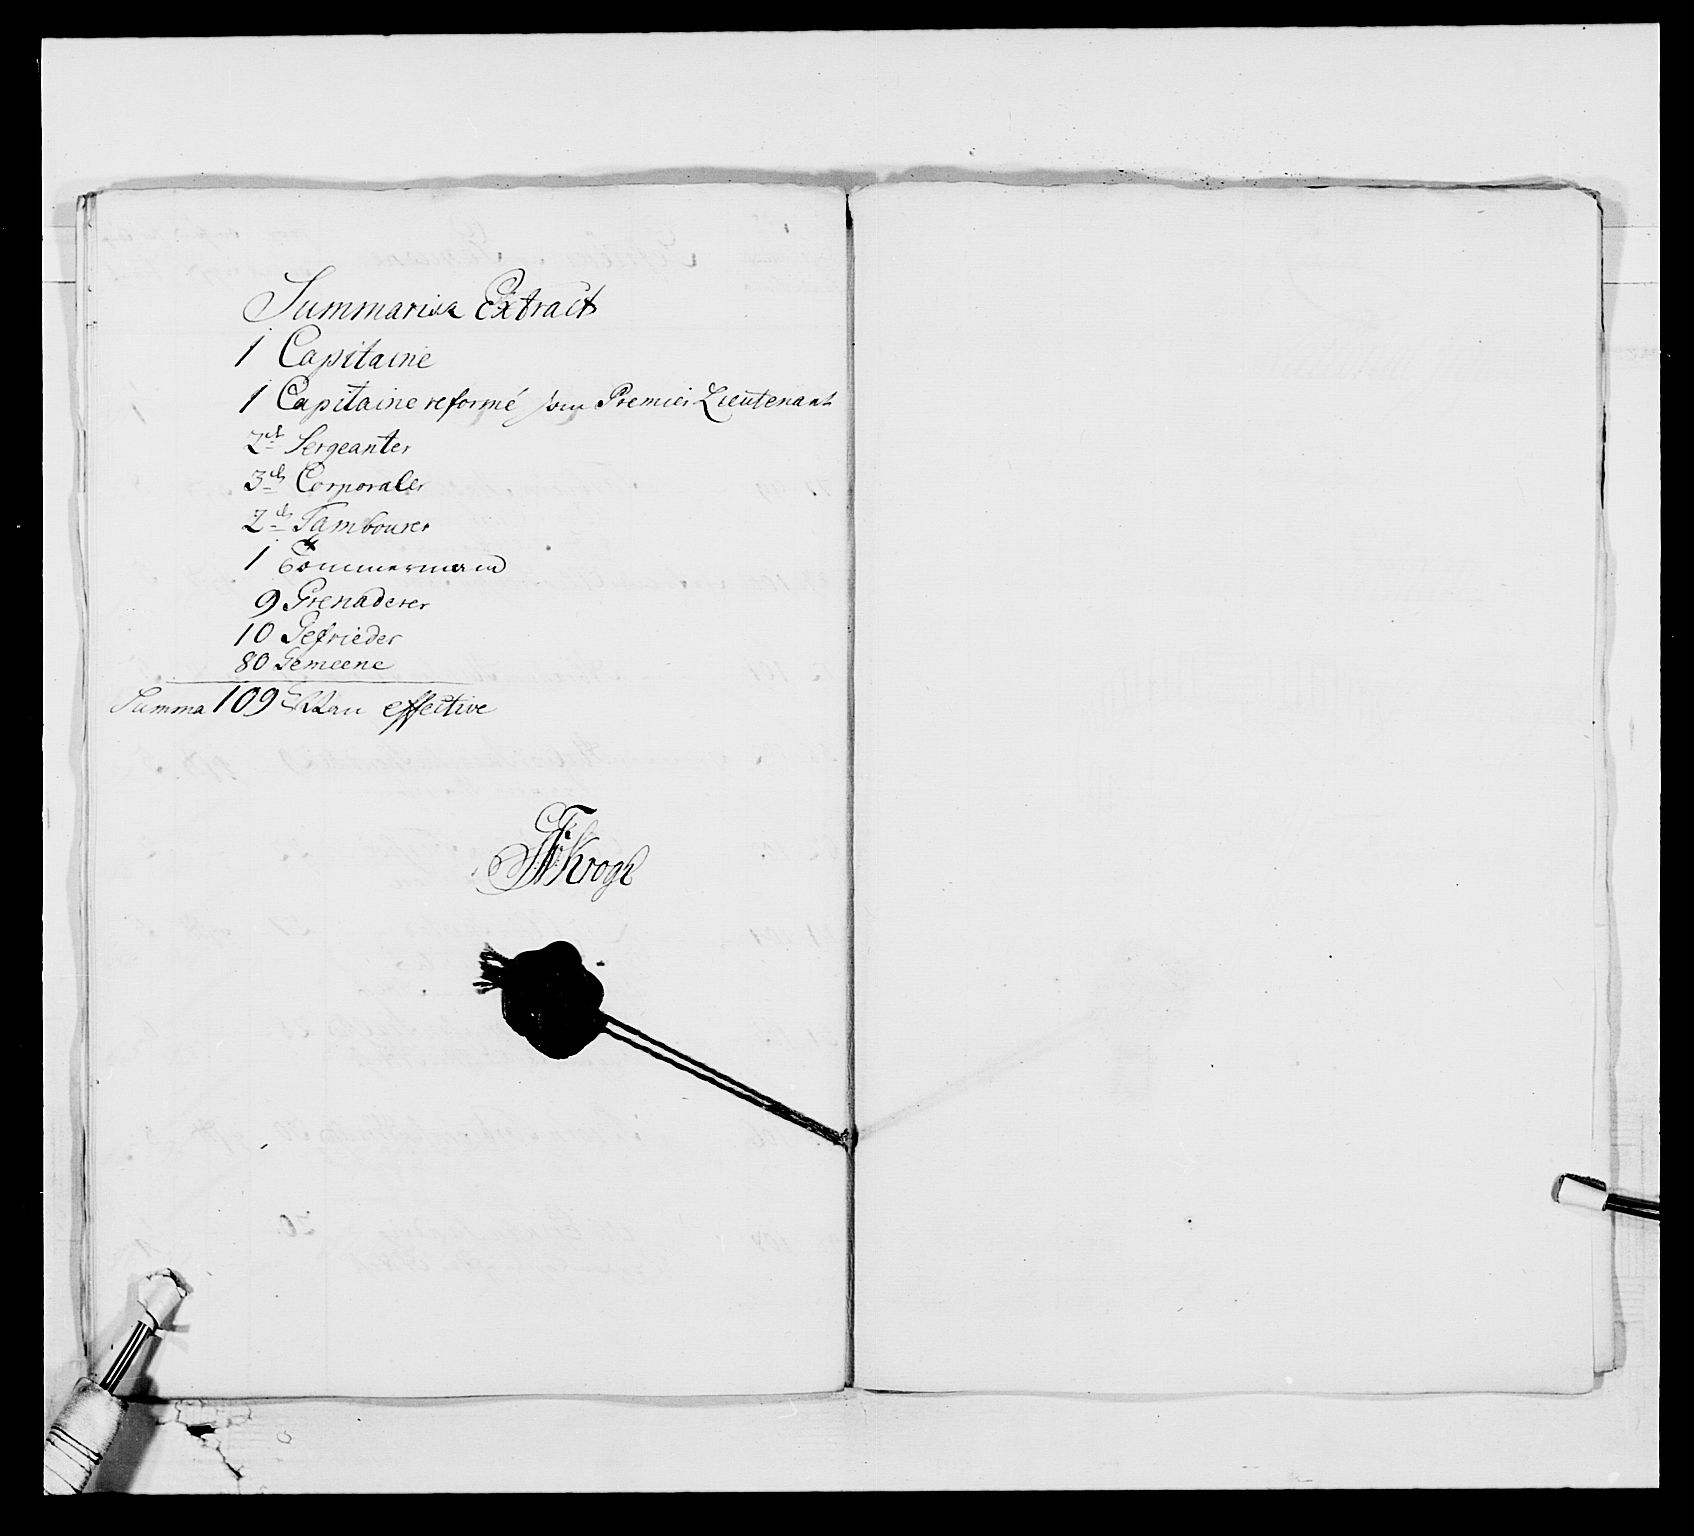 Summarisk Extract
1 Capitaine
1 Capitaine reformé som Premier Lieutenant
2de Sergeanter
3de Corporaler
2de Tambourer
1 Tømmermand
9 Grenaderer
10 Gefrieder
80 Gemeene
Summa 109 Man effective
Krogh